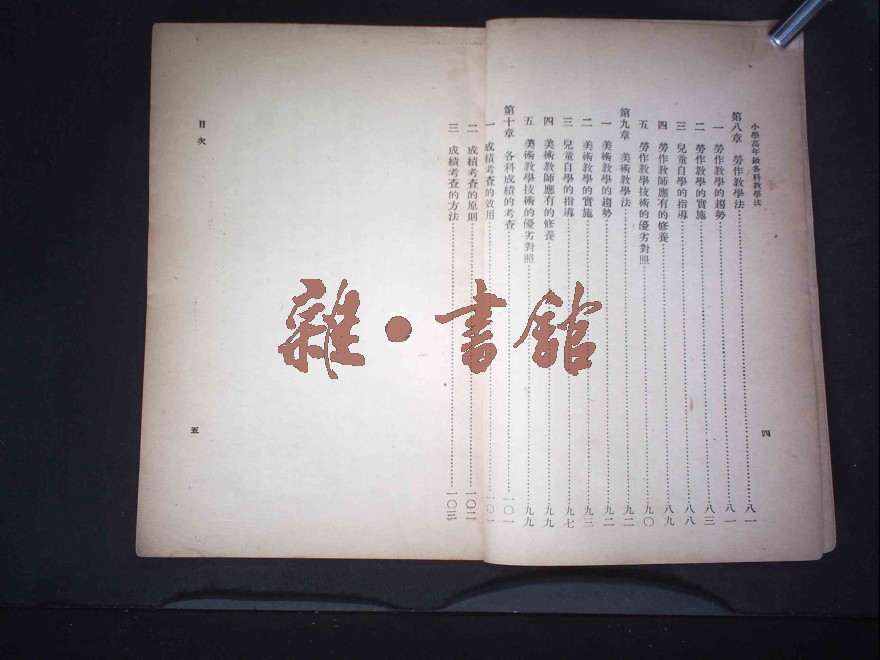 小學高年級各科教學法
四
第八章　勞作教學法……八一
一　勞作教學的趨勢……八一
二　勞作教學的實施……八三
三　兒童自學的指導……八八
四　勞作教師應有的修養……八九
五　勞作教學技術的優劣對照……九〇
第九章　美術教學法……九二
一　美術教學的趨勢……九二
二　美術教學的實施……九三
三　兒童自學的指導……九七
四　美術教師應有的修養……九九
五　美術教學技術的優劣對照……九九
第十章　各科成績的考查……一〇一
一　成績考查的效用……一〇一
二　成績考查的原則……一〇二
三　成績考查的方法……一〇三
目次
五
雜·書館